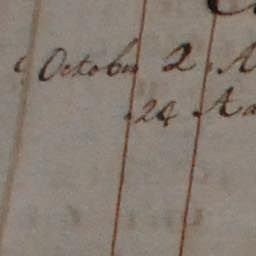 October 2
24